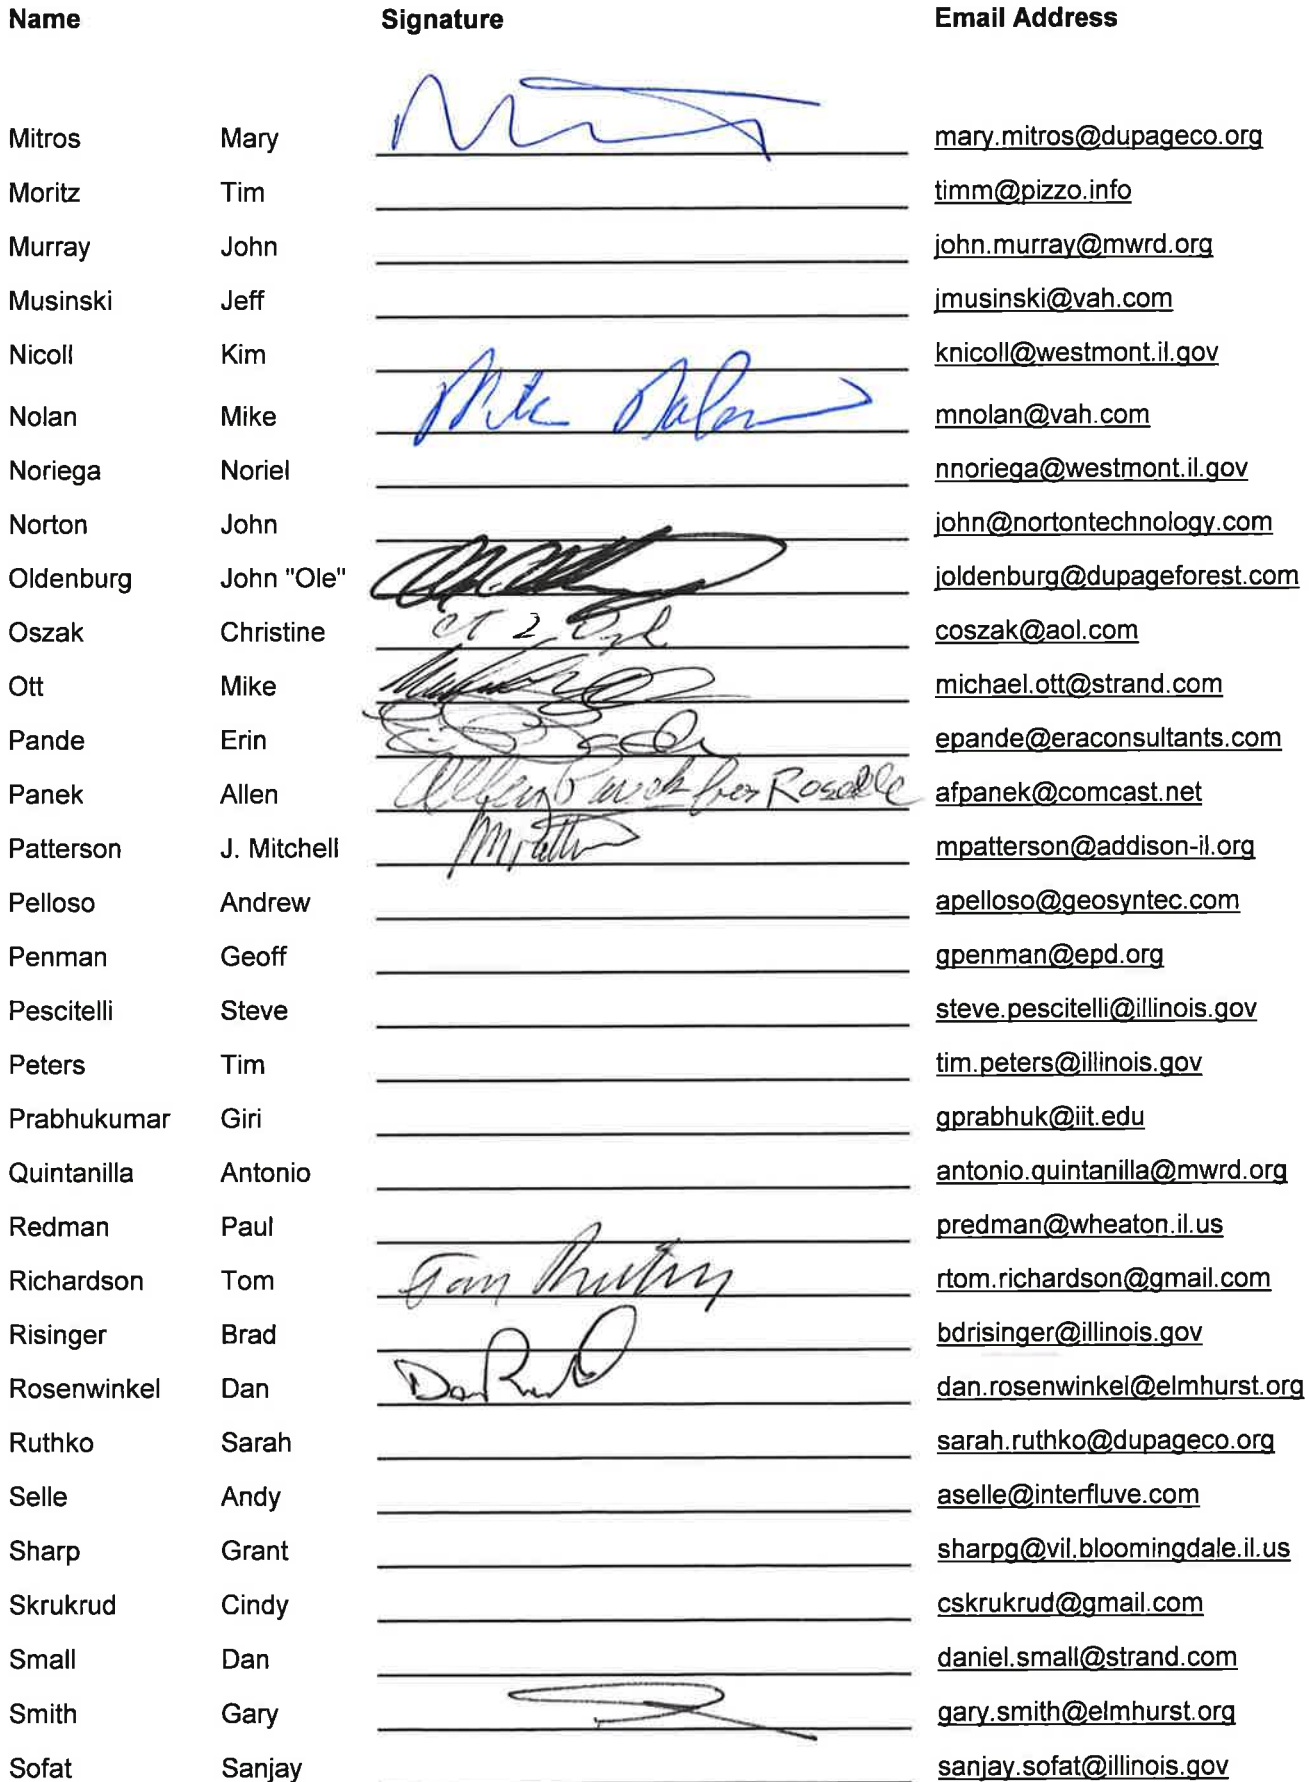 Name Signature Email Address
Mitros Mary mary.mitros@dupageco.org
Moritz Tim timm@pizzo.info
Murray John john.murray@mwrd.org
Musinski Jeff jmusinski@vah.com
Nicoll Kim knicoll@westmont.il.gov
Nolan Mike Mike Nolan mnolan@vah.com
Noriega Noriel nnoriega@westmont.il.gov
Norton John john@nortontechnology.com
Oldenburg John "Ole" joldenburg@dupageforest.com
Oszak Christine coszak@aol.com
Ott Mike michael.ott@strand.com
Pande Erin epande@eraconsultants.com
Panek Allen Allen Panek for Roselle afpanek@comcast.net
Patterson J. Mitchell mpatterson@addison-il.org
Pelloso Andrew apelloso@geosyntec.com
Penman Geoff gpenman@epd.org
Pescitelli Steve steve.pescitelli@illinois.gov
Peters Tim tim.peters@illinois.gov
Prabhukumar Giri gprabhuk@iit.edu
Quintanilla Antonio antonio.quintanilla@mwrd.org
Redman Paul predman@wheaton.il.us
Richardson Tom Tom rtom.richardson@gmail.com
Risinger Brad bdrisinger@illinois.gov
Rosenwinkel Dan Dan dan.rosenwinkel@elmhurst.org
Ruthko Sarah sarah.ruthko@dupageco.org
Selle Andy aselle@interfluve.com
Sharp Grant sharpg@vil.bloomingdale.il.us
Skrukrud Cindy cskrukrud@gmail.com
Small Dan daniel.small@strand.com
Smith Gary gary.smith@elmhurst.org
Sofat Sanjay sanjay.sofat@illinois.gov